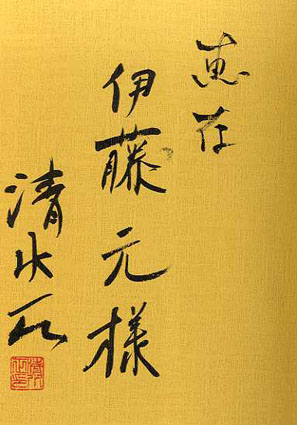 恵存
伊藤元様
清水